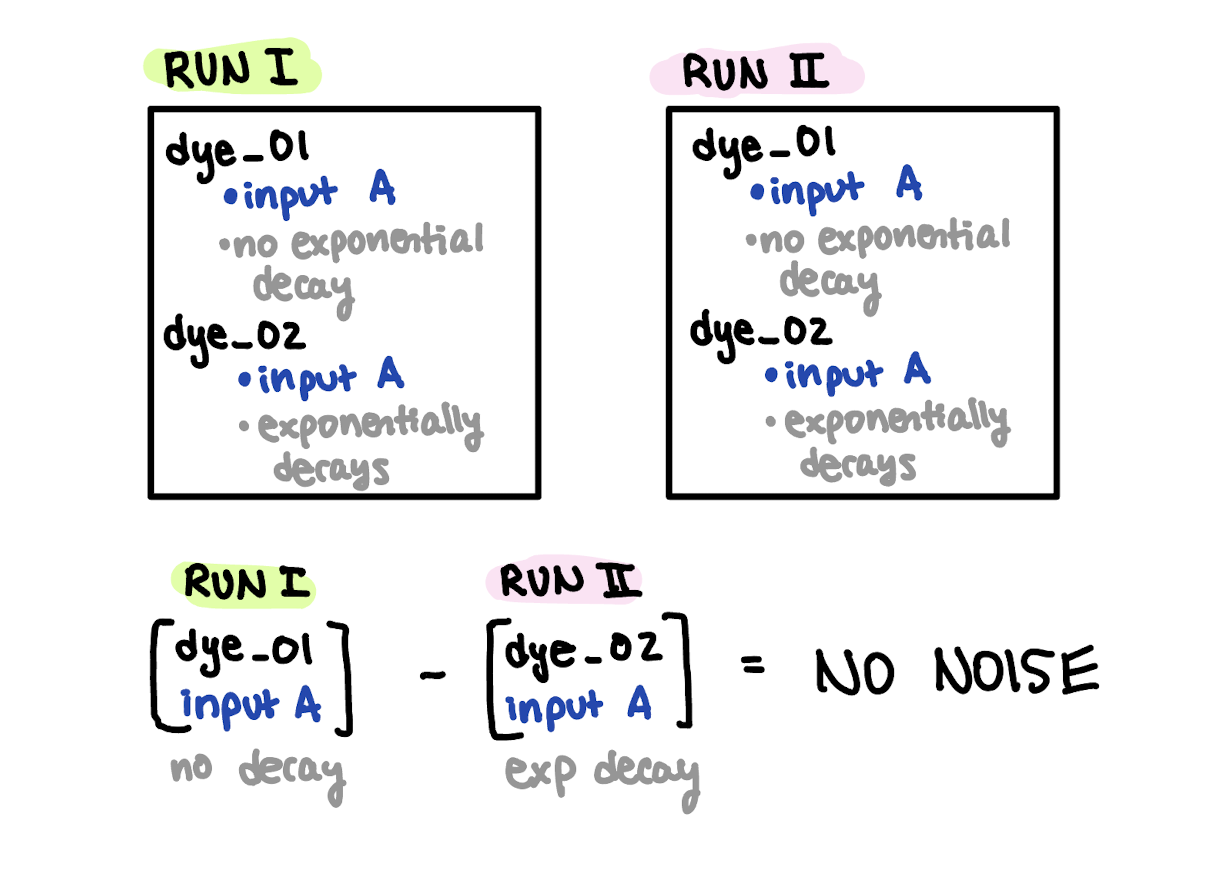 RUN I
dye_01
•input A
•no exponential
decay
dye_02
•input A
•exponentially
decays
RUN II
dye_01
•input A
•no exponential
decay
dye_02
•input A
•exponentially
decays
RUN I RUN II
[dye_01 input A] - [dye_02 input A] = NO NOISE
no decay exp decay